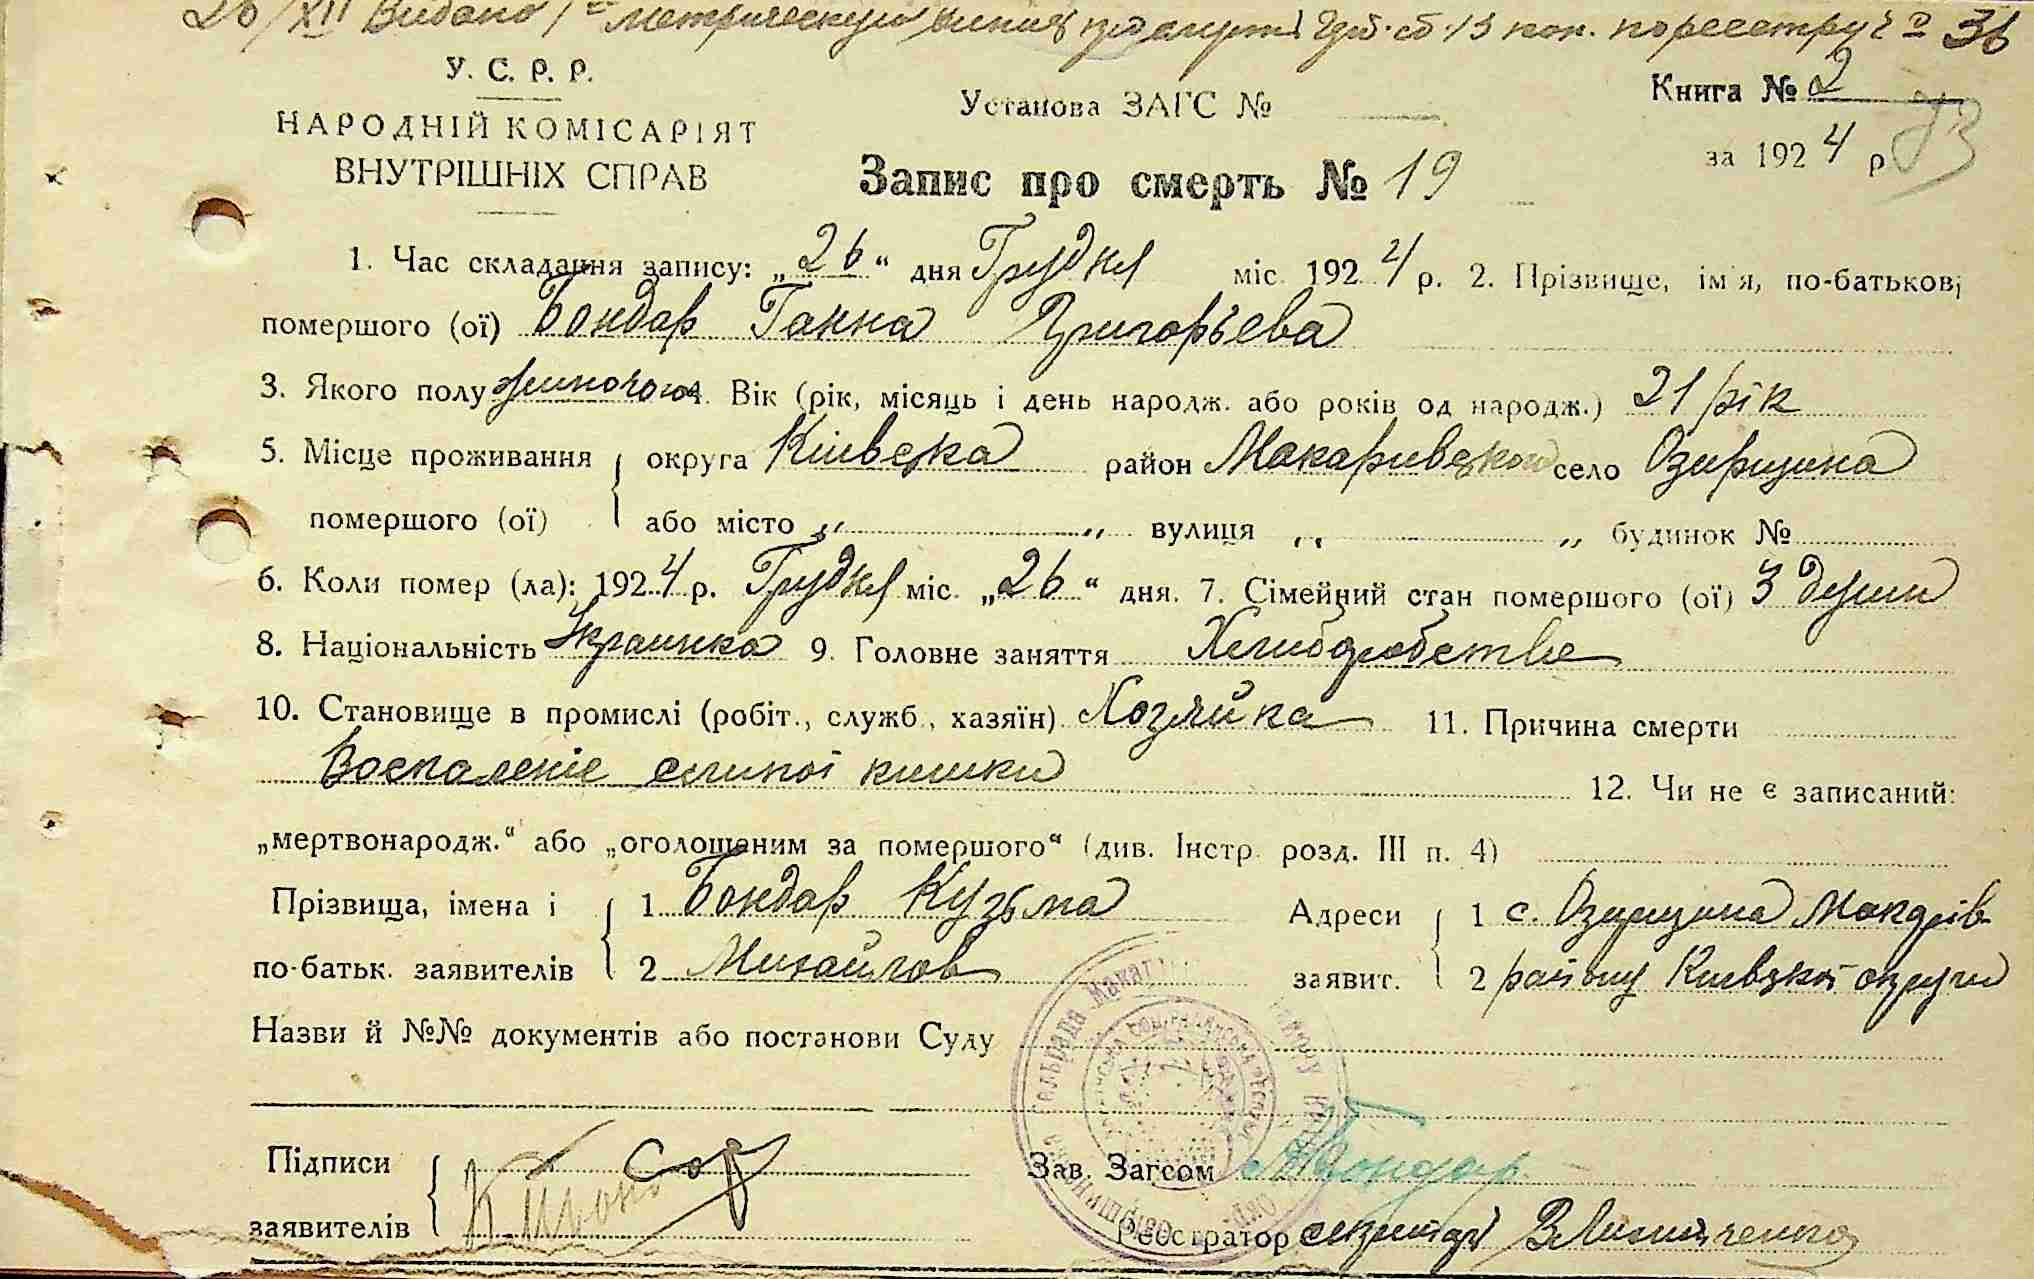 26/XII Видано 1 метрическую по реестру № 36
У. С. Р. Р.
НАРОДНІЙ КОМІСАРІЯТ
ВНУТРІШНІХ СПРАВ
Установа ЗАГС №
Книга № 2
за 1924 р
93
Запис про смерть № 19
1. Час складання запису: „26“ дня Грудня міс. 1924 р. 2. Прізвище, ім'я, по-батькові
помершого (ої) Бондар Ганна Григорьева
3. Якого полу жиночого 4. Вік (рік, місяць і день народж. або років од народж.) 21 рік
5. Місце проживання округа Київська район Макаривской село Озирщина
помершого (ої) або місто „ „ вулиця „ „ будинок №
6. Коли помер (ла): 1924 р. Грудня міс. „26“ дня. 7. Сімейний стан помершого (ої) 3 души
8. Національність Украинка 9. Головне заняття Хлибдробство
10. Становище в промислі (робіт., служб., хазяїн) Хозяйка 11. Причина смерти
Воспаленіе слипої кишки
12. Чи не є записаний:
„мертвонародж.“ або „оголошеним за помершого“ (див. Інстр. розд. III п. 4)
Прізвища, імена і 1 Бондар Кузьма Адреси 1 с. Озирщина Макарів
по-батьк. заявителів 2 Михайлов заявит. 2 району Київської округи
Назви й №№ документів або постанови Суду
Підписи
заявителів
Зав. Загсом Бондар
Реєстратор секритарь